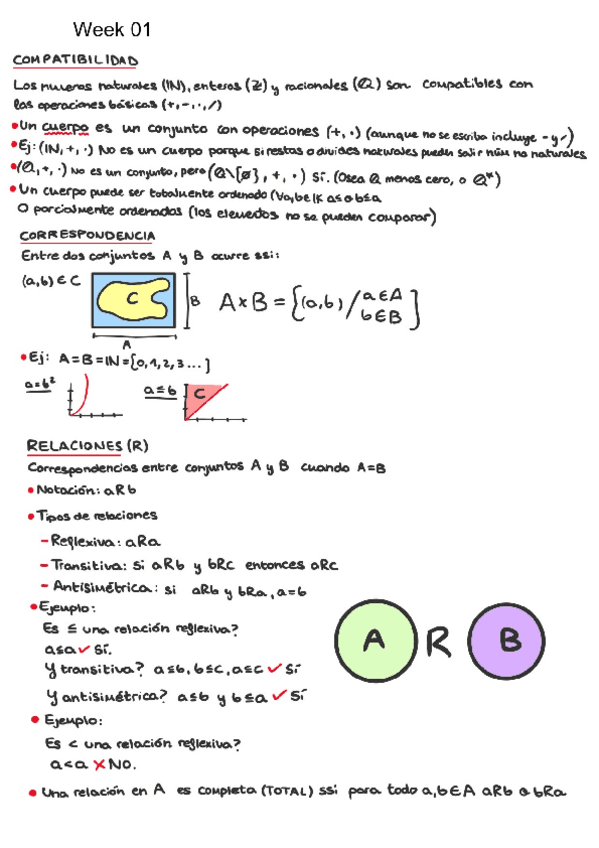 Week 01
COMPATIBILIDAD
Los numeros naturales (ℕ), enteros (ℤ) y racionales (ℚ) son compatibles con
las operaciones básicas (+, -, ·, /)
• Un cuerpo es un conjunto con operaciones (+, ·) (aunque no se escriba incluye - y /)
• Ej: (ℕ, +, ·) No es un cuerpo porque si restas o divides naturales pueden salir núm no naturales
• (ℚ, +, ·) No es un conjunto, pero (ℚ\{ø}, +, ·) Sí. (Osea ℚ menos cero, o ℚ*)
• Un cuerpo puede ser totalmente ordenado (∀a,b∈ℝ a≤o b≤a
O parcialmente ordenados (los elementos no se pueden comparar)
CORRESPONDENCIA
Entre dos conjuntos A y B ocurre ssi:
(a,b) ∈ C
C
B
A
A×B = {(a,b) / a∈A
b∈B}
• Ej: A=B=ℕ={0,1,2,3...}
a=b²
a≤b
C
RELACIONES (R)
Correspondencias entre conjuntos A y B cuando A=B
• Notación: aRb
• Tipos de relaciones
- Reflexiva: aRa
- Transitiva: si aRb y bRc entonces aRc
- Antisimétrica: si aRb y bRa, a=b
• Ejemplo:
Es ≤ una relación reflexiva?
a≤a ✓ Sí.
Y transitiva? a≤b, b≤c, a≤c ✓ Sí
Y antisimétrica? a≤b y b≤a ✓ Sí
A R B
• Ejemplo:
Es < una relación reflexiva?
a<a ✗ No.
• Una relación en A es completa (TOTAL) ssi para todo a,b∈A aRb o bRa